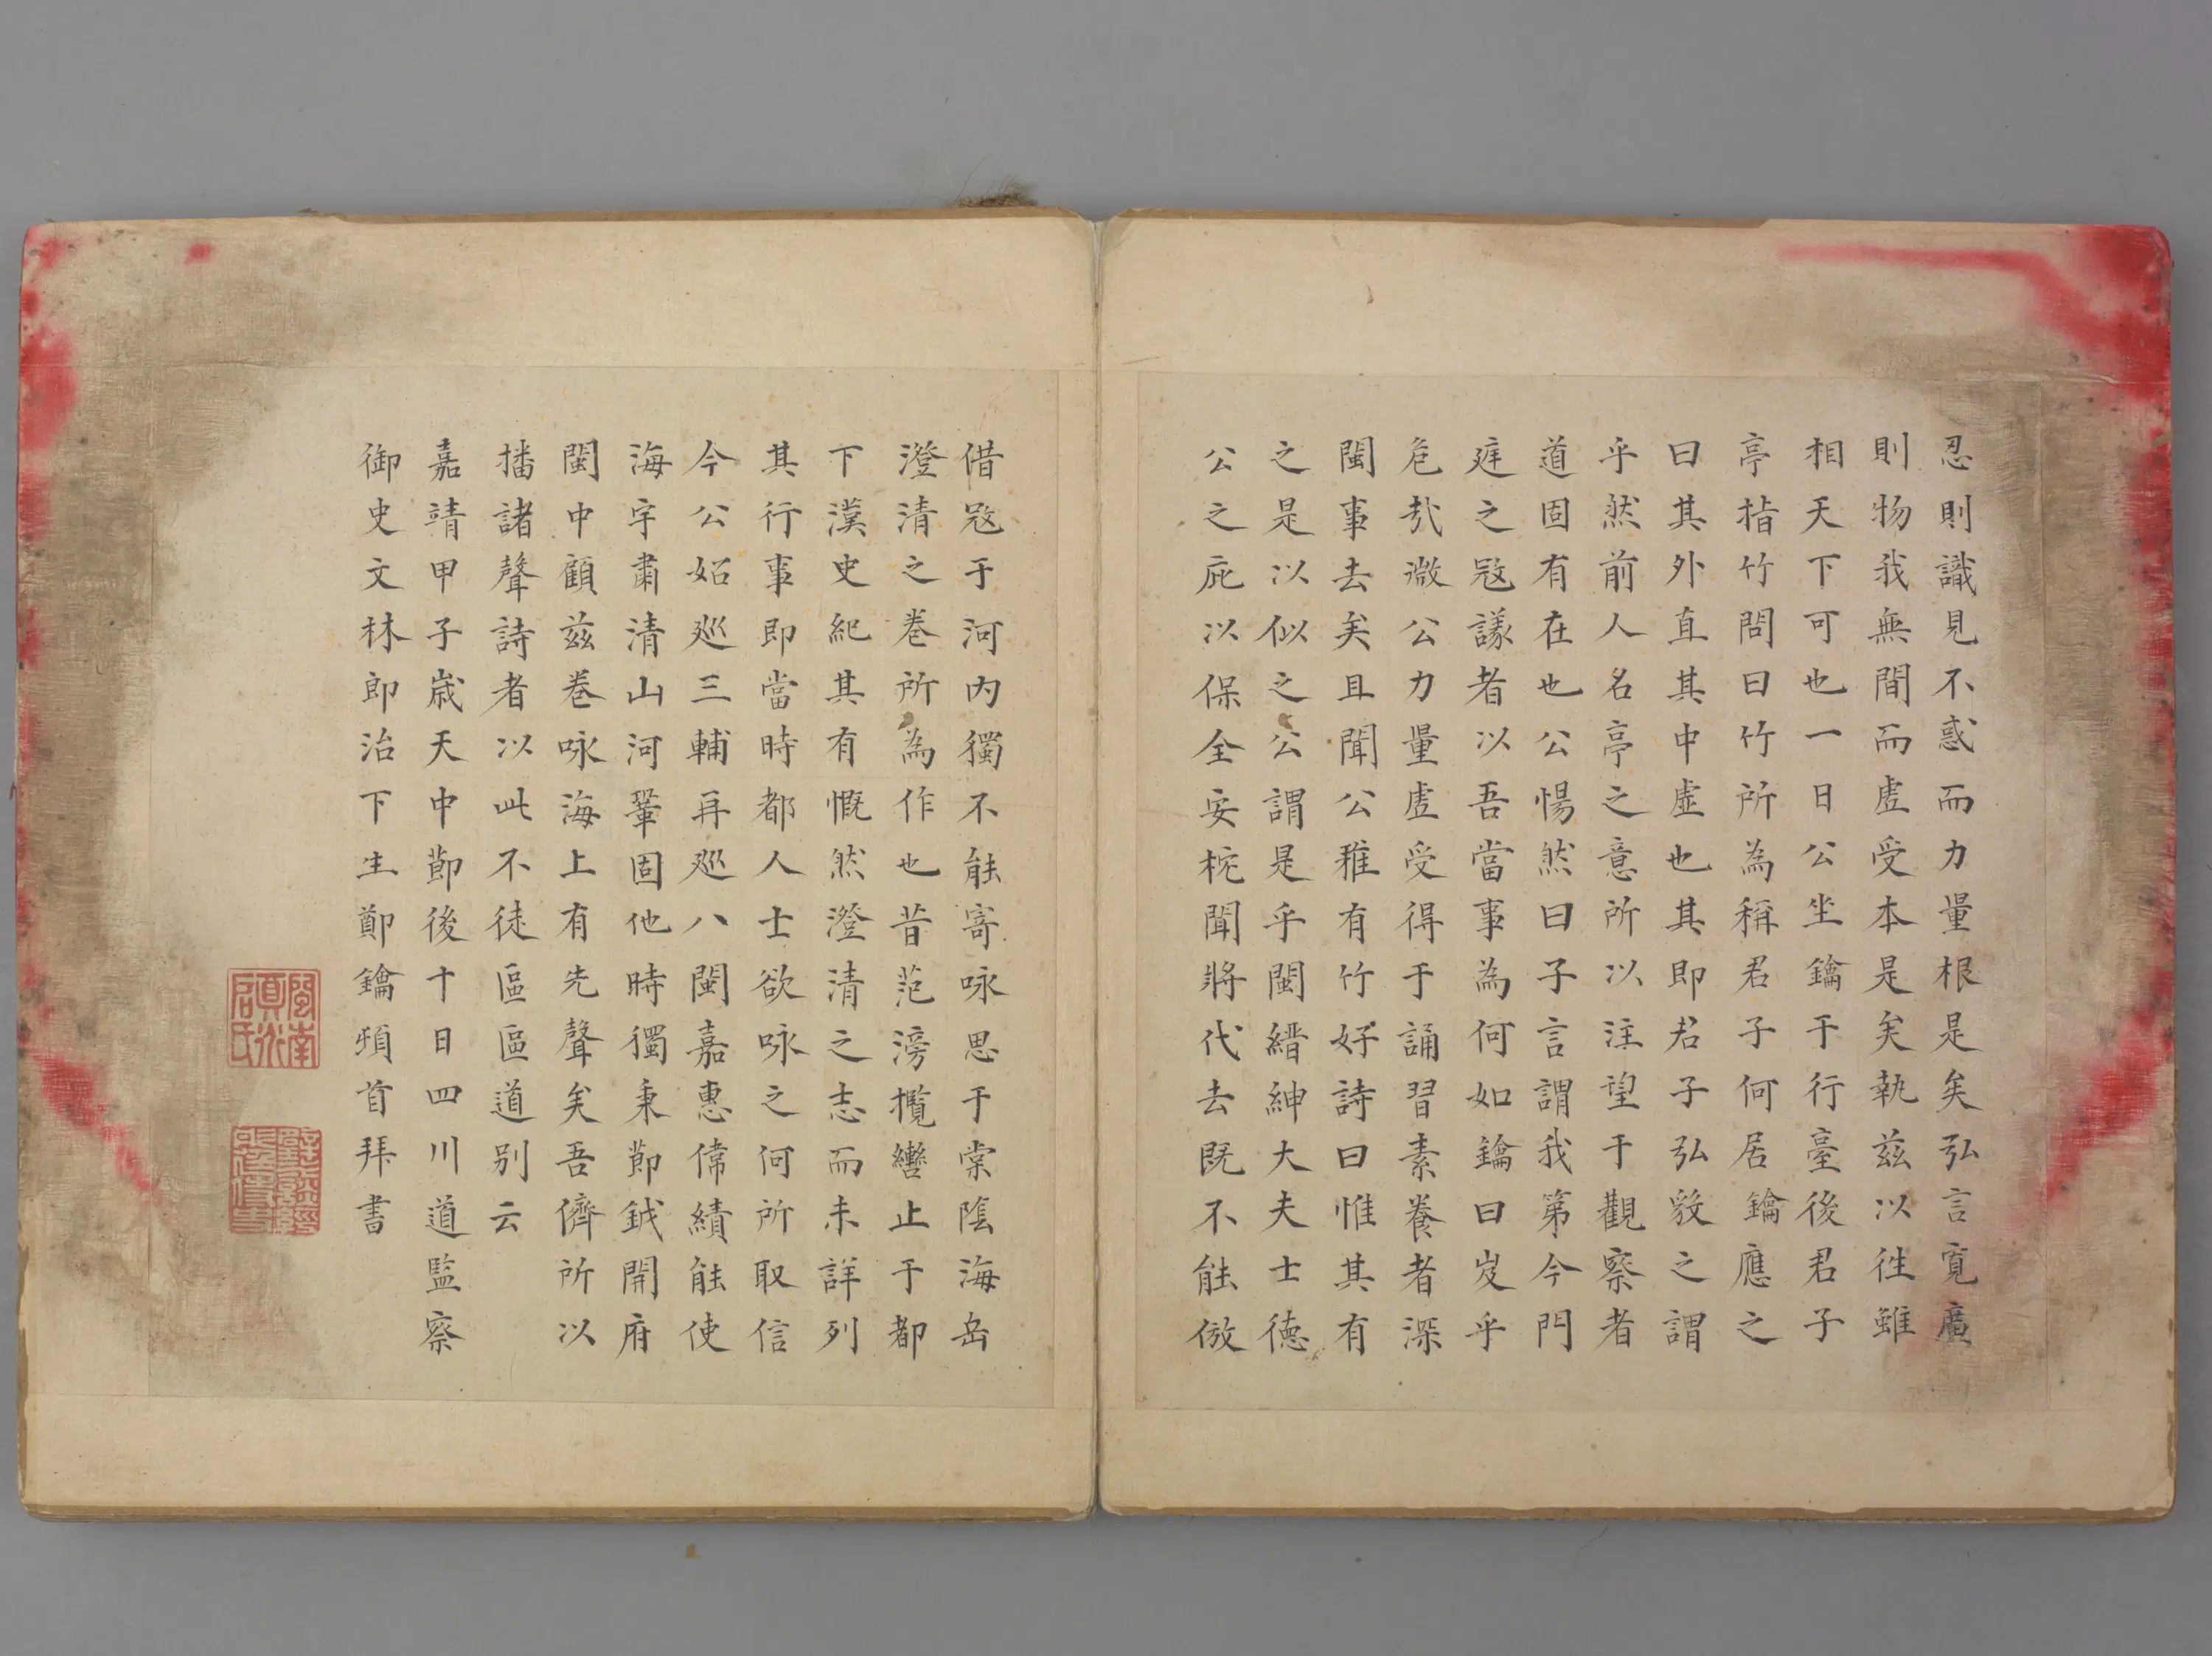 忍則識見不惑而力量根是矣弘言寬廣
則物我無間而虛受本是矣執兹以徃雖
相天下可也一日公坐鑰于行臺後君子
亭指竹問曰竹所為稱君子何居鑰應之
曰其外直其中虛也其即君子弘毅之謂
乎然前人名亭之意所以注望于觀察者
道固有在也公惕然曰子言謂我第今門
庭之寇議者以吾當事為何如鑰曰岌乎
危哉微公力量虛受得于誦習素養者深
閩事去矣且聞公雅有竹好詩曰惟其有
之是以似之公謂是乎閩縉紳大夫士德
公之庇以保全安枕聞將代去既不能倣
借寇于河內獨不能寄咏思于棠陰海岳
澄清之卷所為作也昔范滂攬轡止于都
下漢史紀其有慨然澄清之志而未詳列
其行事即當時都人士欲咏之何所取信
今公始廵三輔再廵八閩嘉惠偉績能使
海宇肅清山河鞏固他時獨秉節鉞開府
閩中顧茲卷咏海上有先聲矣吾儕所以
播諸聲詩者以此不徒區區道别云
嘉靖甲子歲天中節後十日四川道監察
御史文林郎治下生鄭鑰頓首拜書